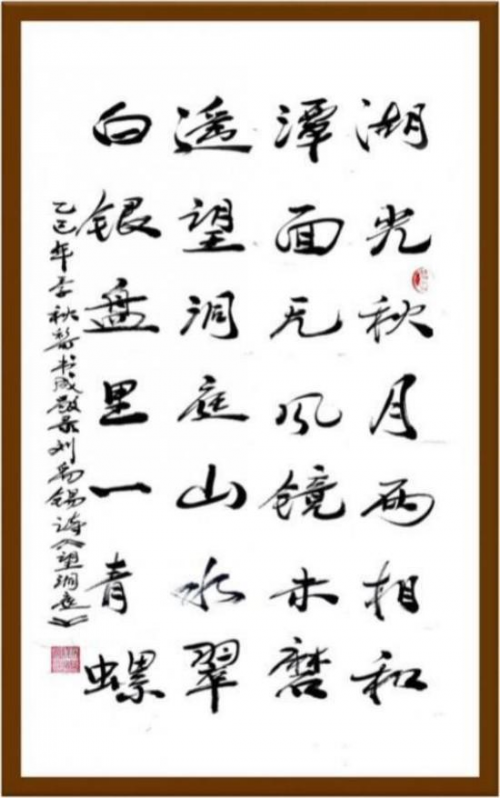 湖光秋月两相和
潭面无风镜未磨
遥望洞庭山水翠
白银盘里一青螺
乙巳年季秋书录刘禹锡诗《望洞庭》